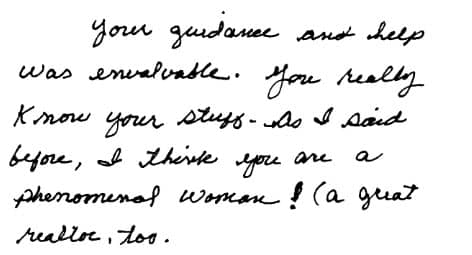 Your guidance and help
was envalvable. You really
know your stuff - As I said
before, I think you are a
phenomenal woman! (a great
realtor, too.